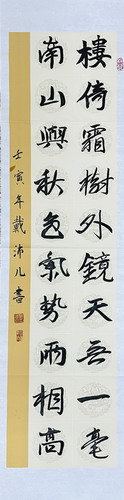 樓倚霜樹外鏡天無一毫
南山與秋色氣勢兩相高
壬寅年戴沛兒書